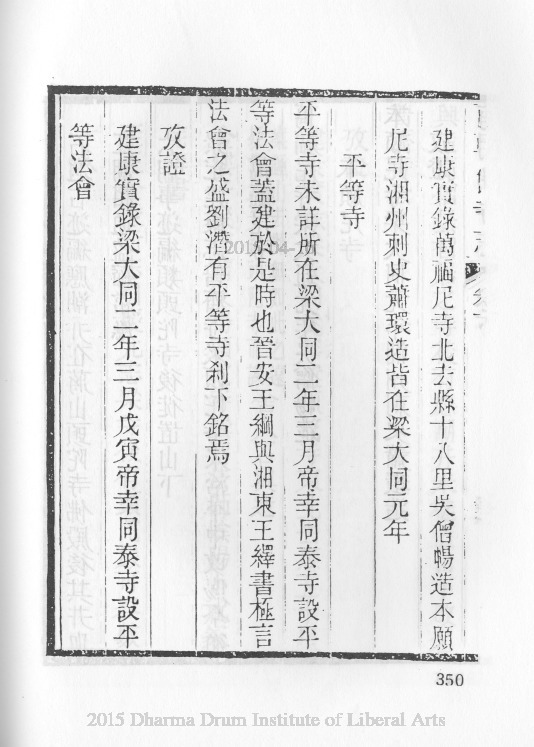 建康實錄萬福尼寺北去縣十八里吳僧暢造本願
尼寺湘州刺史蕭環造皆在梁大同元年
平等寺
平等寺未詳所在梁大同二年三月帝幸同泰寺設平
等法會蓋建於是時也晉安王綱與湘東王繹書極言
法會之盛劉潛有平等寺剎下銘焉
攷證
建康實錄梁大同二年三月戊寅帝幸同泰寺設平
等法會
350
2015 Dharma Drum Institute of Liberal Arts